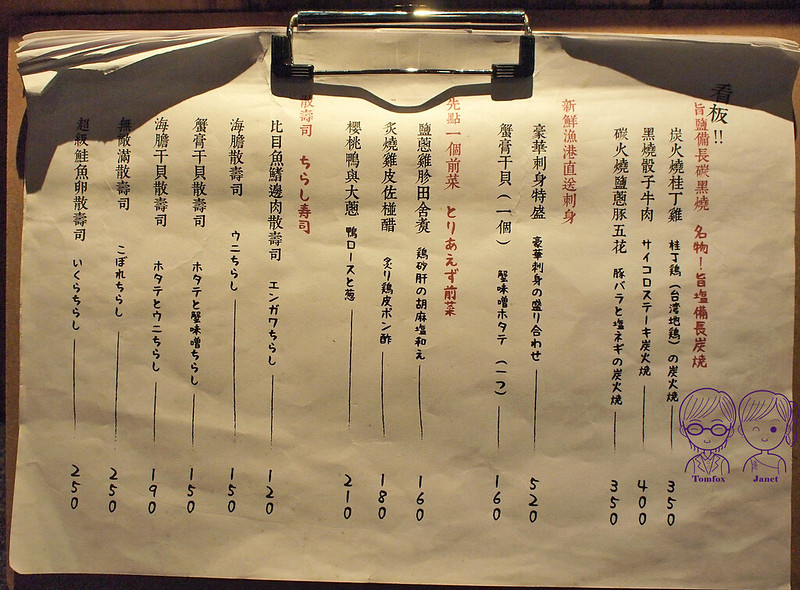 看板!!
旨鹽備長碳黑燒 名物!旨塩備長炭燒
炭火燒桂丁雞 桂丁鶏(台湾地鶏)の炭火焼 350
黑燒骰子牛肉 サイコロステーキ炭火焼 400
碳火燒鹽蔥豚五花 豚バラと塩ネギの炭火焼 350
新鮮漁港直送刺身
豪華刺身特盛 豪華刺身の盛り合わせ 520
蟹膏干貝(一個) 蟹味噌ホタテ(一つ) 160
先點一個前菜 とりあえず前菜
鹽蔥雞胗田舍煮 鶏砂肝の胡麻塩和え 160
炙燒雞皮佐椪醋 炙り鶏皮ポン酢 180
櫻桃鴨與大蔥 鴨ロースと葱 210
散壽司 ちらし寿司
比目魚鰭邊肉散壽司 エンガワちらし 120
海膽散壽司 ウニちらし 150
蟹膏干貝散壽司 ホタテと蟹味噌ちらし 150
海膽干貝散壽司 ホタテとウニちらし 190
無敵滿散壽司 こぼれちらし 250
超級鮭魚卵散壽司 いくらちらし 250
Tomfox Janet